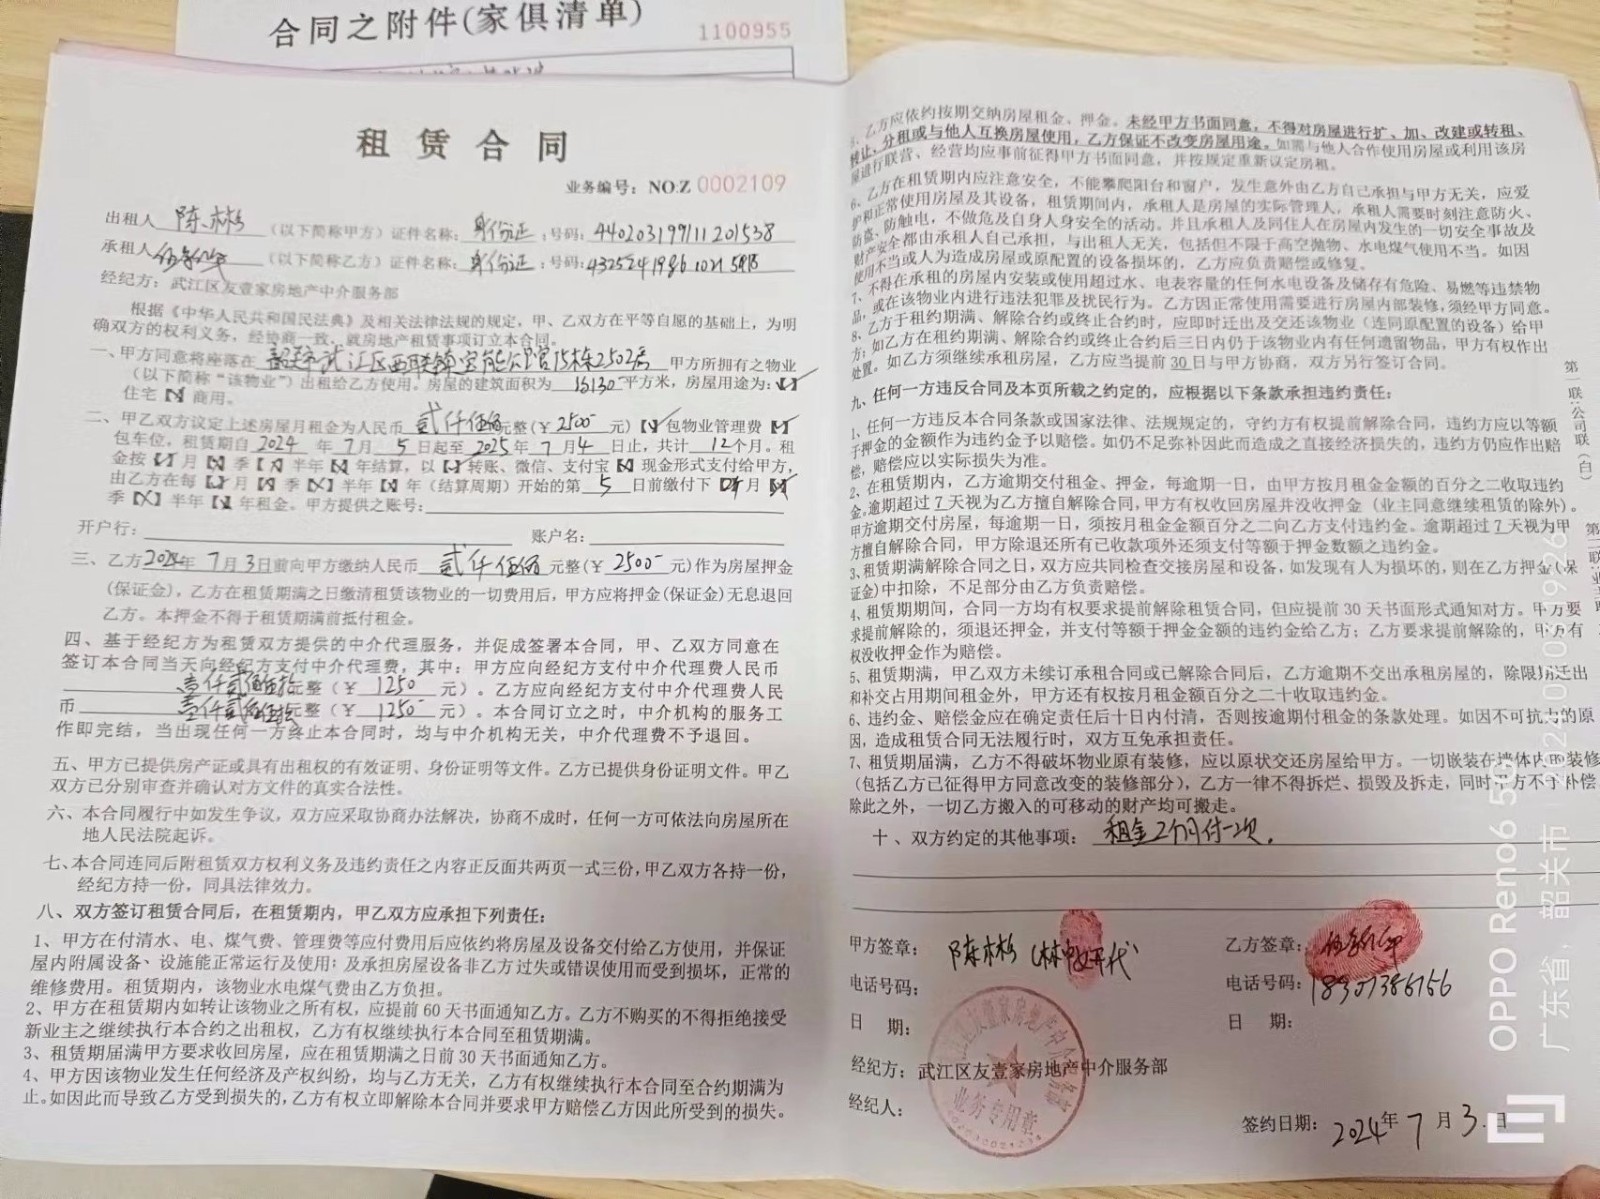 合同之附件(家俱清单)
1100955
租赁合同
业务编号：NO.Z 0002109
出租人 陈林彬 （以下简称甲方）证件名称：身份证：号码：440203199111201538
承租人 （以下简称乙方）证件名称：身份证：号码：
经纪方：武江区友壹家房地产中介服务部
根据《中华人民共和国民法典》及相关法律法规的规定，甲、乙双方在平等自愿的基础上，为明
确双方的权利义务，经协商一致，就房地产租赁事项订立本合同。
一、甲方同意将座落在 韶关市武江区西联镇宝能公馆15栋2502房 甲方所拥有之物业
（以下简称“该物业”）出租给乙方使用。房屋的建筑面积为 平方米，房屋用途为：【✓】
住宅【】商用。
二、甲乙双方议定上述房屋月租金为人民币 贰仟伍佰 元整（￥ 2500 元）【】包物业管理费【】
包车位，租赁期自 2024 年 7 月 5 日起至 2025 年 7 月 4 日止，共计 12 个月。租
金按【】月【】季【】半年【】年结算，以【】转账、微信、支付宝【】现金形式支付给甲方，
由乙方在每【】月【】季【】半年【】年（结算周期）开始的第 5 日前缴付下【】月【】
季【】半年【】年租金。甲方提供之账号：
开户行： 账户名：
三、乙方2024年 7 月 3 日前向甲方缴纳人民币 贰仟伍佰 元整（￥ 2500 元）作为房屋押金
(保证金)，乙方在租赁期满之日缴清租赁该物业的一切费用后，甲方应将押金(保证金)无息退回
乙方。本押金不得于租赁期满前抵付租金。
四、基于经纪方为租赁双方提供的中介代理服务，并促成签署本合同，甲、乙双方同意在
签订本合同当天向经纪方支付中介代理费，其中：甲方应向经纪方支付中介代理费人民币
壹仟贰佰伍拾元整（￥ 1250 元）。乙方应向经纪方支付中介代理费人民
币 壹仟贰佰伍拾元整（￥ 1250 元）。本合同订立之时，中介机构的服务工
作即完结，当出现任何一方终止本合同时，均与中介机构无关，中介代理费不予退回。
五、甲方已提供房产证或具有出租权的有效证明、身份证明等文件。乙方已提供身份证明文件。甲乙
双方已分别审查并确认对方文件的真实合法性。
六、本合同履行中如发生争议，双方应采取协商办法解决，协商不成时，任何一方可依法向房屋所在
地人民法院起诉。
七、本合同连同后附租赁双方权利义务及违约责任之内容正反面共两页一式三份，甲乙双方各持一份，
经纪方持一份，同具法律效力。
八、双方签订租赁合同后，在租赁期内，甲乙双方应承担下列责任：
1、甲方在付清水、电、煤气费、管理费等应付费用后应依约将房屋及设备交付给乙方使用，并保证
屋内附属设备、设施能正常运行及使用；及承担房屋设备非乙方过失或错误使用而受到损坏，正常的
维修费用。租赁期内，该物业水电煤气费由乙方负担。
2、甲方在租赁期内如转让该物业之所有权，应提前 60 天书面通知乙方。乙方不购买的不得拒绝接受
新业主之继续执行本合约之出租权，乙方有权继续执行本合同至租赁期满。
3、租赁期届满甲方要求收回房屋，应在租赁期满之日前 30 天书面通知乙方。
4、甲方因该物业发生任何经济及产权纠纷，均与乙方无关，乙方有权继续执行本合同至合约期满为
止。如因此而导致乙方受到损失的，乙方有权立即解除本合同并要求甲方赔偿乙方因此所受到的损失。
5、乙方应依约按期交纳房屋租金、押金。未经甲方书面同意，不得对房屋进行扩、加、改建或转租、
转让、分租或与他人互换房屋使用，乙方保证不改变房屋用途。如需与他人合作使用房屋或利用该房
屋进行联营、经营均应事前征得甲方书面同意，并按规定重新议定房租。
6、乙方在租赁期内应注意安全，不能攀爬阳台和窗户，发生意外由乙方自己承担与甲方无关，应爱
护和正常使用房屋及其设备，租赁期间内，承租人是房屋的实际管理人，承租人需要时刻注意防火、
防盗、防触电，不做危及自身人身安全的活动。并且承租人及同住人在房屋内发生的一切安全事故及
财产安全都由承租人自己承担，与出租人无关，包括但不限于高空抛物、水电煤气使用不当。如因
使用不当或人为造成房屋或原配置的设备损坏的，乙方应负责赔偿或修复。
7、不得在承租的房屋内安装或使用超过水、电表容量的任何水电设备及储存有危险、易燃等违禁物
品，或在该物业内进行违法犯罪及扰民行为。乙方因正常使用需要进行房屋内部装修，须经甲方同意。
8、乙方于租约期满、解除合约或终止合约时，应即时迁出及交还该物业（连同原配置的设备）给甲
方；如乙方在租约期满、解除合约或终止合约后三日内仍于该物业内有任何遗留物品，甲方有权作出
处置。如乙方须继续承租房屋，乙方应当提前 30 日与甲方协商，双方另行签订合同。
九、任何一方违反合同及本页所载之约定的，应根据以下条款承担违约责任：
1、任何一方违反本合同条款或国家法律、法规规定的，守约方有权提前解除合同，违约方应以等额
于押金的金额作为违约金予以赔偿。如仍不足弥补因此而造成之直接经济损失的，违约方仍应作出赔
偿，赔偿应以实际损失为准。
2、在租赁期内，乙方逾期交付租金、押金，每逾期一日，由甲方按月租金金额的百分之二收取违约
金。逾期超过 7 天视为乙方擅自解除合同，甲方有权收回房屋并没收押金（业主同意继续租赁的除外）。
甲方逾期交付房屋，每逾期一日，须按月租金金额百分之二向乙方支付违约金。逾期超过 7 天视为甲
方擅自解除合同，甲方除退还所有已收款项外还须支付等额于押金数额之违约金。
3、租赁期满解除合同之日，双方应共同检查交接房屋和设备，如发现有人为损坏的，则在乙方押金(保
证金)中扣除，不足部分由乙方负责赔偿。
4、租赁期期间，合同一方均有权要求提前解除租赁合同，但应提前 30 天书面形式通知对方。甲方要
求提前解除的，须退还押金，并支付等额于押金金额的违约金给乙方；乙方要求提前解除的，甲方有
权没收押金作为赔偿。
5、租赁期满，甲乙双方未续订承租合同或已解除合同后，乙方逾期不交出承租房屋的，除限期迁出
和补交占用期间租金外，甲方还有权按月租金额百分之二十收取违约金。
6、违约金、赔偿金应在确定责任后十日内付清，否则按逾期付租金的条款处理。如因不可抗力的原
因，造成租赁合同无法履行时，双方互免承担责任。
7、租赁期届满，乙方不得破坏物业原有装修，应以原状交还房屋给甲方。一切嵌装在墙体内的装修
(包括乙方已征得甲方同意改变的装修部分)，乙方一律不得拆烂、损毁及拆走，同时甲方不予补偿
除此之外，一切乙方搬入的可移动的财产均可搬走。
十、双方约定的其他事项： 租金2个月付一次。
甲方签章： 陈林彬
乙方签章：
电话号码：
电话号码：18307386756
日 期：
日 期：
经纪方：武江区友壹家房地产中介服务部
经纪人：
业务专用章
签约日期：2024年 7 月 3 日
第一联：公司联（白）
OPPO Reno6 5G
广东省，韶关市